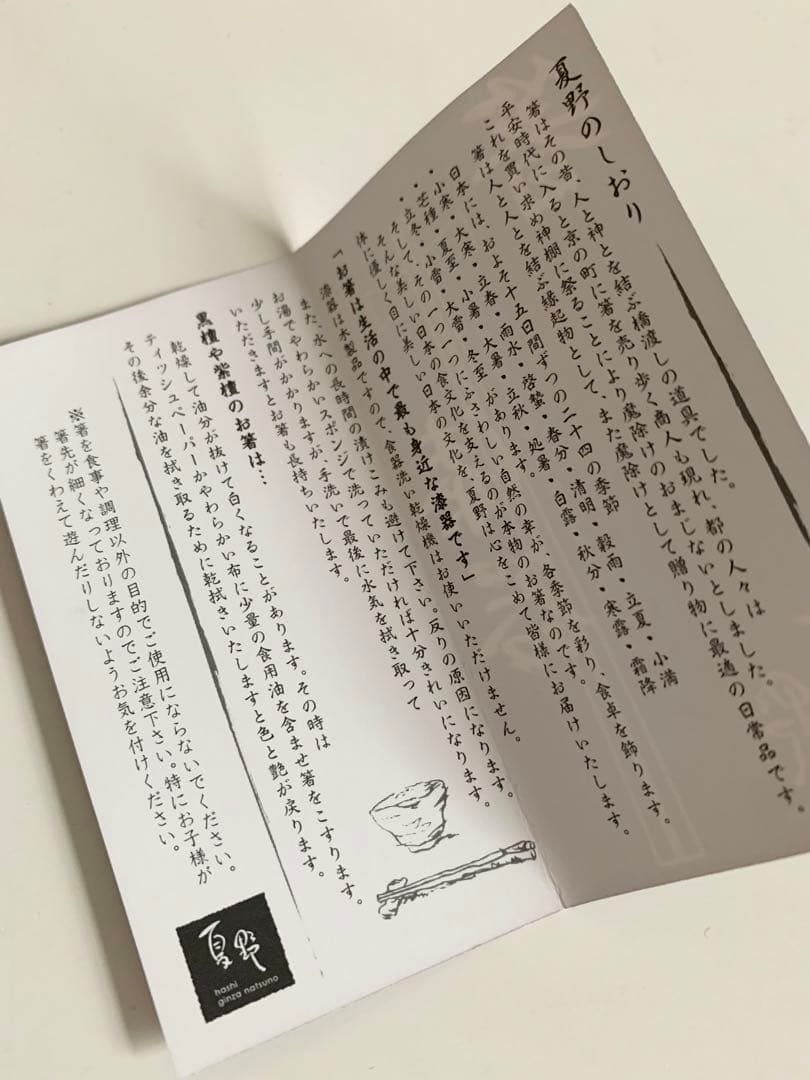 夏野のしおり
箸はその昔、人と神とを結ぶ橋渡しの道具でした。都の人々は
平安時代に入ると京の町に箸を売り歩く商人も現れ、
これを買い求め神棚に祭ることにより魔除けのおまじないとしました。
箸は人と人とを結ぶ縁起物として、また魔除けとして贈り物に最適の日常品です。
日本には、およそ十五日間ずつの二十四の季節
・小寒・大寒・立春・雨水・啓蟄・春分・清明・穀雨・立夏・小満
・芒種・夏至・小暑・大暑・立秋・処暑・白露・秋分・寒露・霜降
・立冬・小雪・大雪・冬至 があります。
そして、その一つ一つにふさわしい自然の幸が、各季節を彩り、食卓を飾ります。
そんな美しい日本の食文化を支えるのが本物のお箸なのです。
体に優しく目に美しい日本の文化を、夏野は心をこめて皆様にお届けいたします。
「お箸は生活の中で最も身近な漆器です」
漆器は木製品ですので、食器洗い乾燥機はお使いいただけません。
また、水への長時間の漬けこみも避けて下さい。反りの原因になります。
お湯でやわらかいスポンジで洗っていただければ十分きれいになります。
少し手間がかかりますが、手洗いで最後に水気を拭き取って
いただきますとお箸も長持ちいたします。
黒檀や紫檀のお箸は…
乾燥して油分が抜けて白くなることがあります。その時は
ティッシュペーパーかやわらかい布に少量の食用油を含ませ箸をこすります。
その後余分な油を拭き取るために乾拭きいたしますと色と艶が戻ります。
※箸を食事や調理以外の目的でご使用にならないでください。
箸先が細くなっておりますのでご注意下さい。特にお子様が
箸をくわえて遊んだりしないようお気を付けください。
夏野
hashi
ginza natsuno